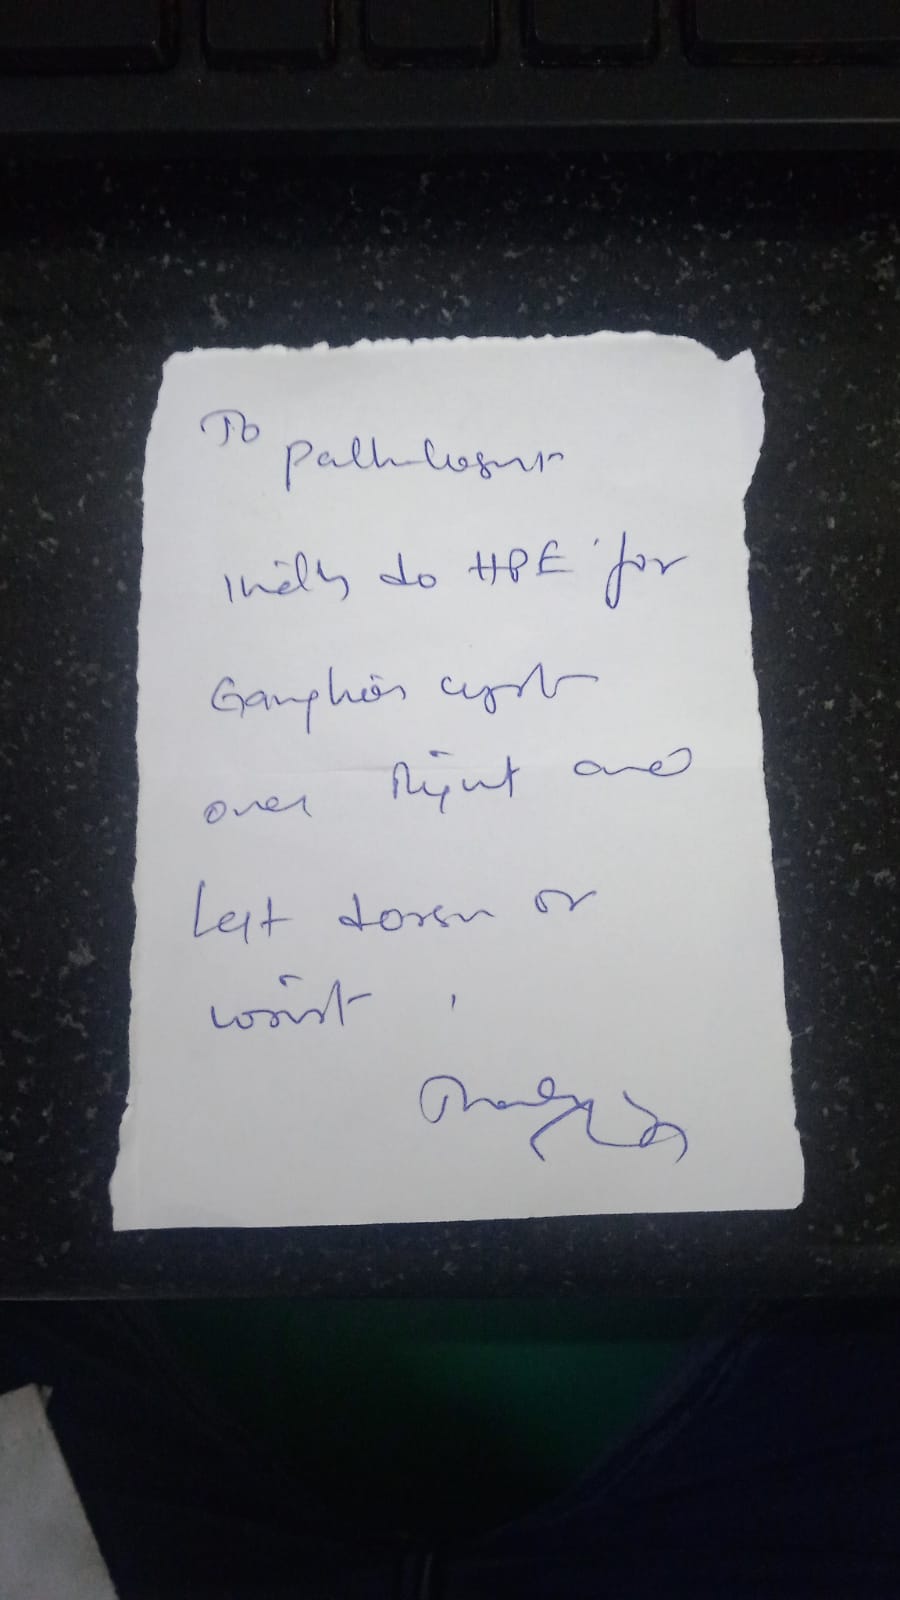 To
Pathologist
kindly do HPE for
Ganglion cyst
over Right and
Left dorsum of
wrist.
Thank you